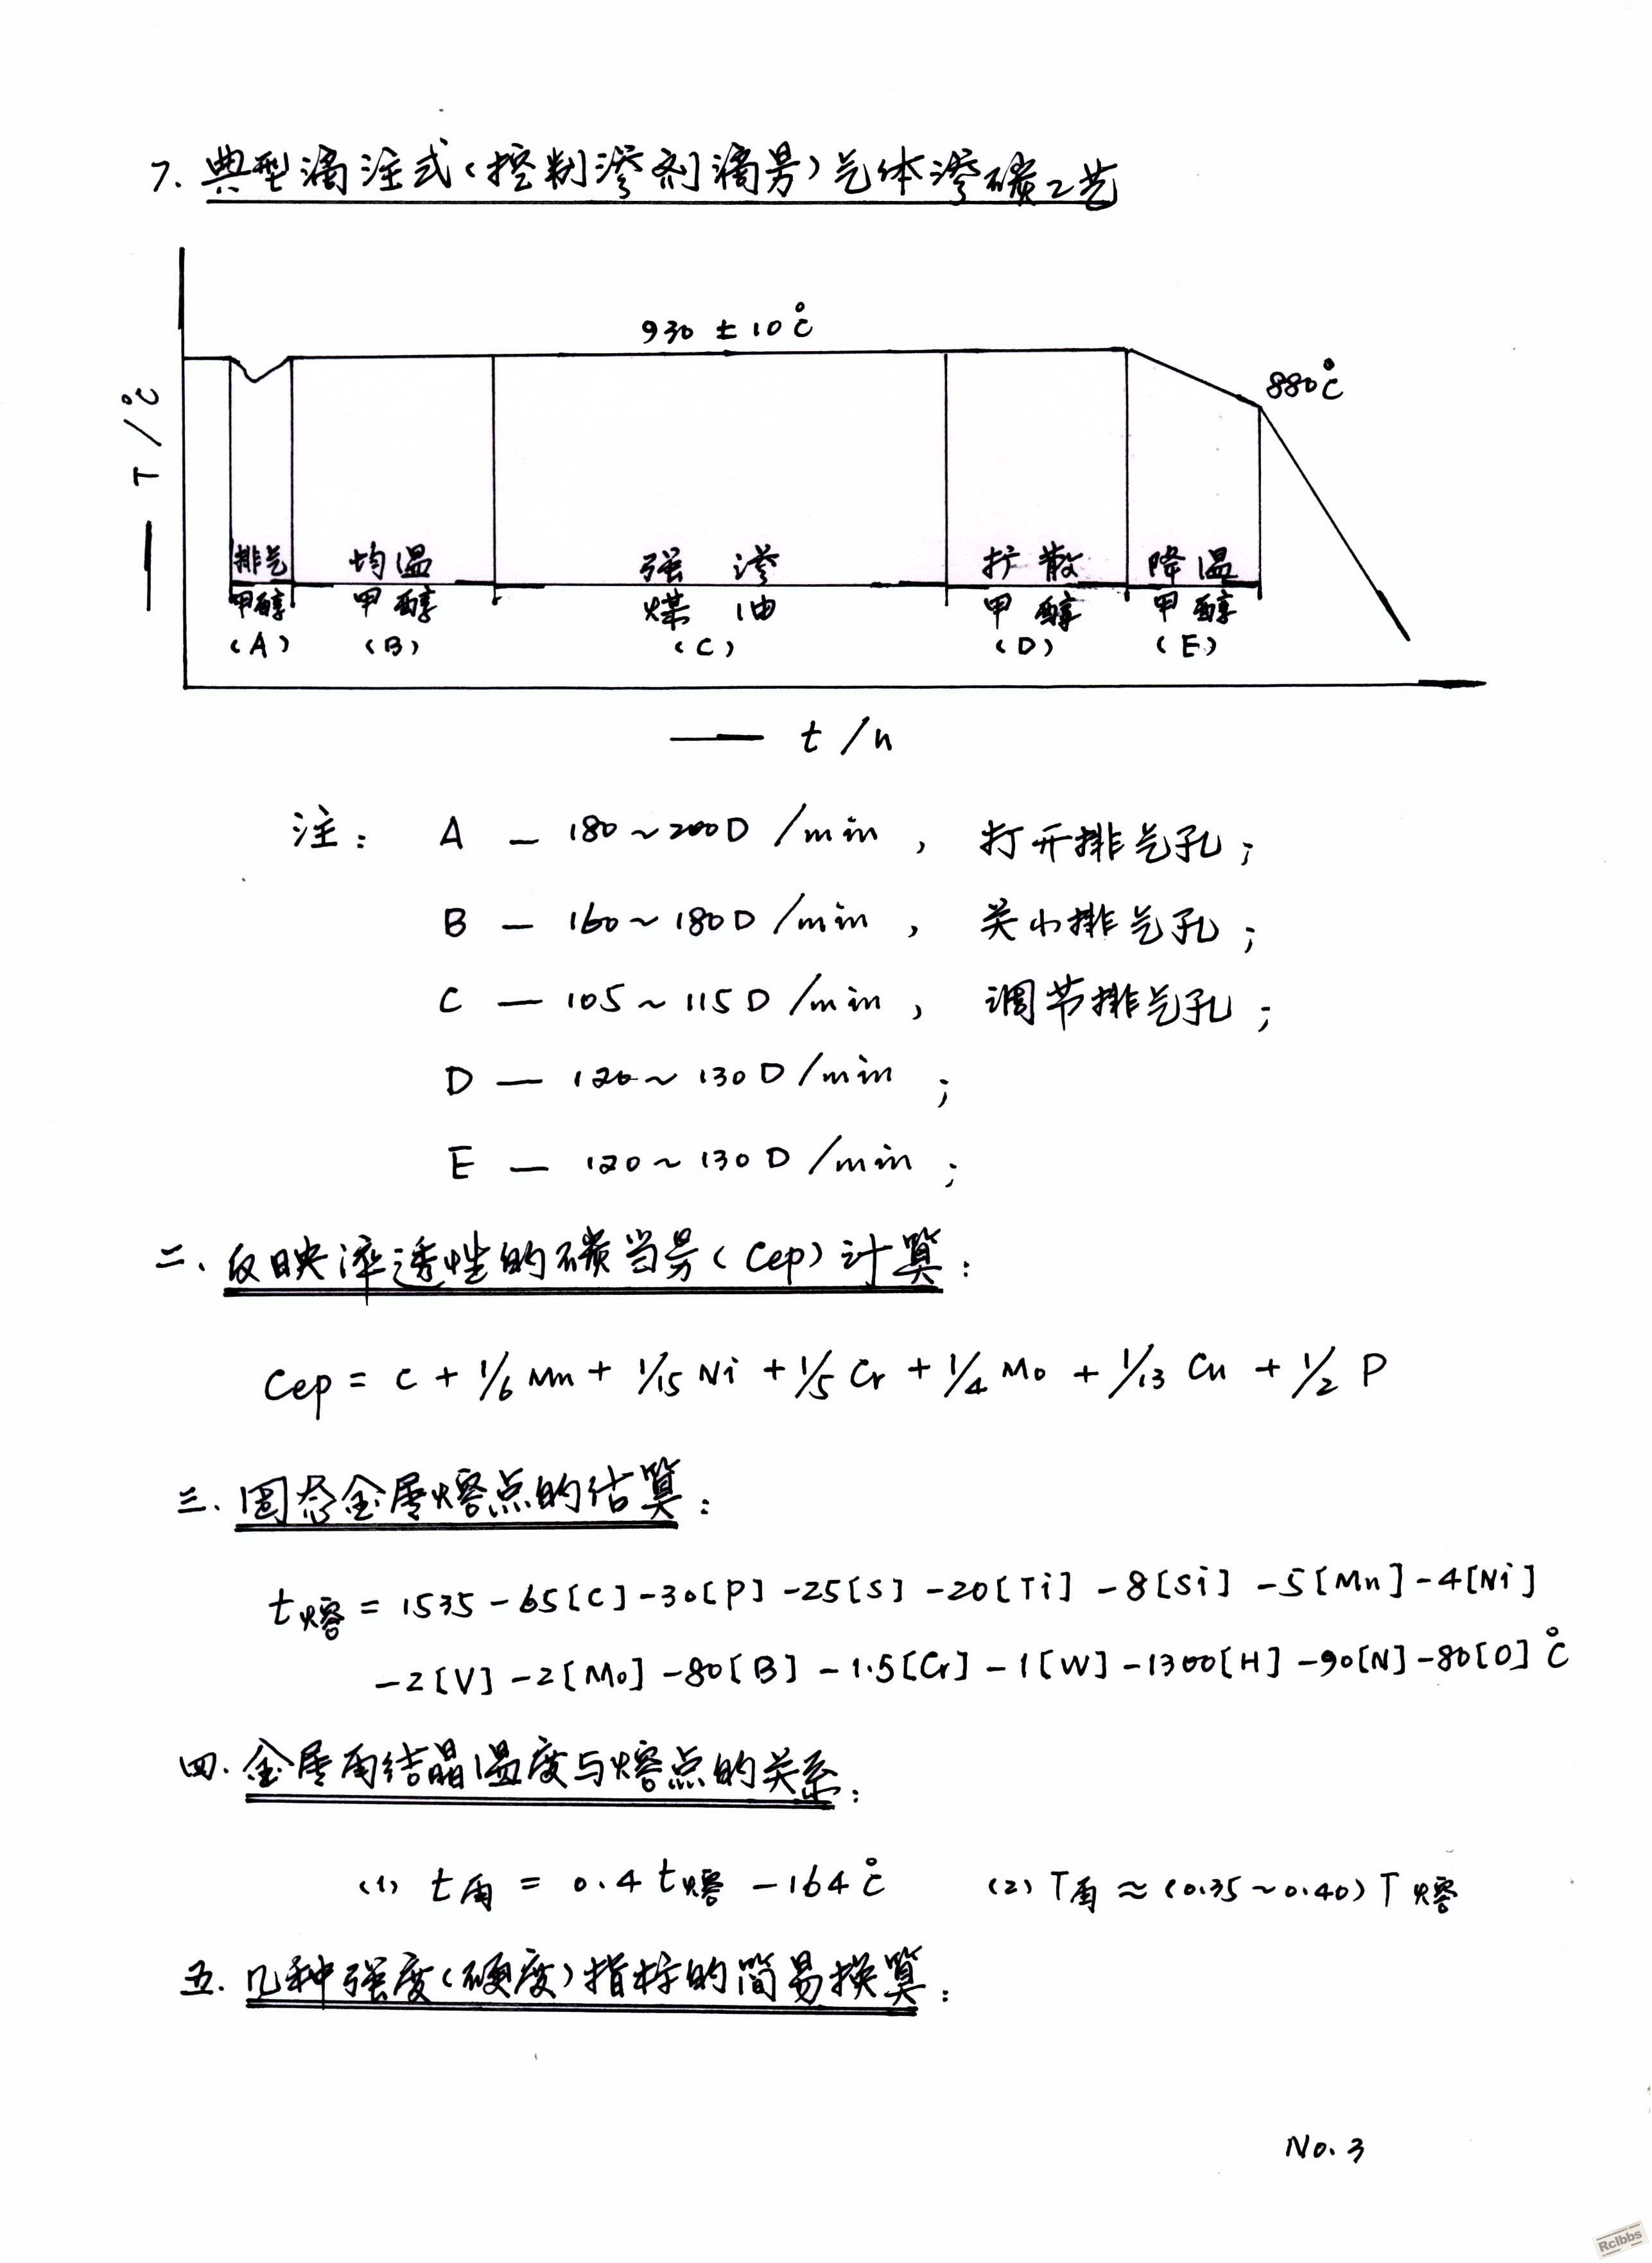 7. 典型滴注式(控制渗剂滴量)气体渗碳工艺
930 ± 10℃
880℃
T/℃
排气 均温 强渗 扩散 降温
甲醇 甲醇 煤油 甲醇 甲醇
(A) (B) (C) (D) (E)
t/h
注: A — 180~200D/min, 打开排气孔;
B — 160~180D/min, 关小排气孔;
C — 105~115D/min, 调节排气孔;
D — 120~130D/min ;
E — 120~130D/min ;
二. 反映淬透性的碳当量(Cep)计算:
Cep = C + 1/6 Mn + 1/15 Ni + 1/5 Cr + 1/4 Mo + 1/13 Cu + 1/2 P
三. 固态金属熔点的估算:
t熔 = 1535 - 65[C] - 30[P] - 25[S] - 20[Ti] - 8[Si] - 5[Mn] - 4[Ni]
- 2[V] - 2[Mo] - 80[B] - 1.5[Cr] - 1[W] - 1300[H] - 90[N] - 80[O] ℃
四. 金属再结晶温度与熔点的关系:
(1) t再 = 0.4 t熔 - 164℃ (2) T再 ≈ (0.35~0.40) T熔
五. 几种强度(硬度)指标的简易换算:
No. 3
Rclbbs